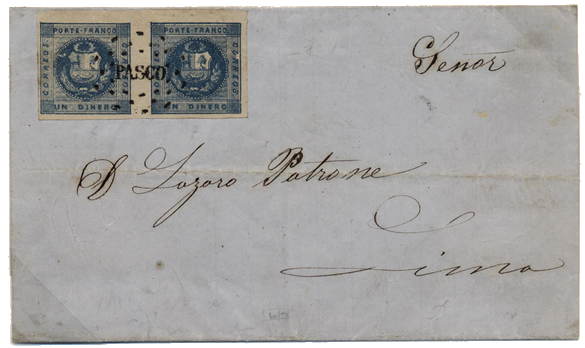 PORTE FRANCO
CORREOS
CORREOS
UN DINERO
PORTE FRANCO
CORREOS
CORREOS
UN DINERO
PASCO
Señor
D Lazaro Patrone
Lima